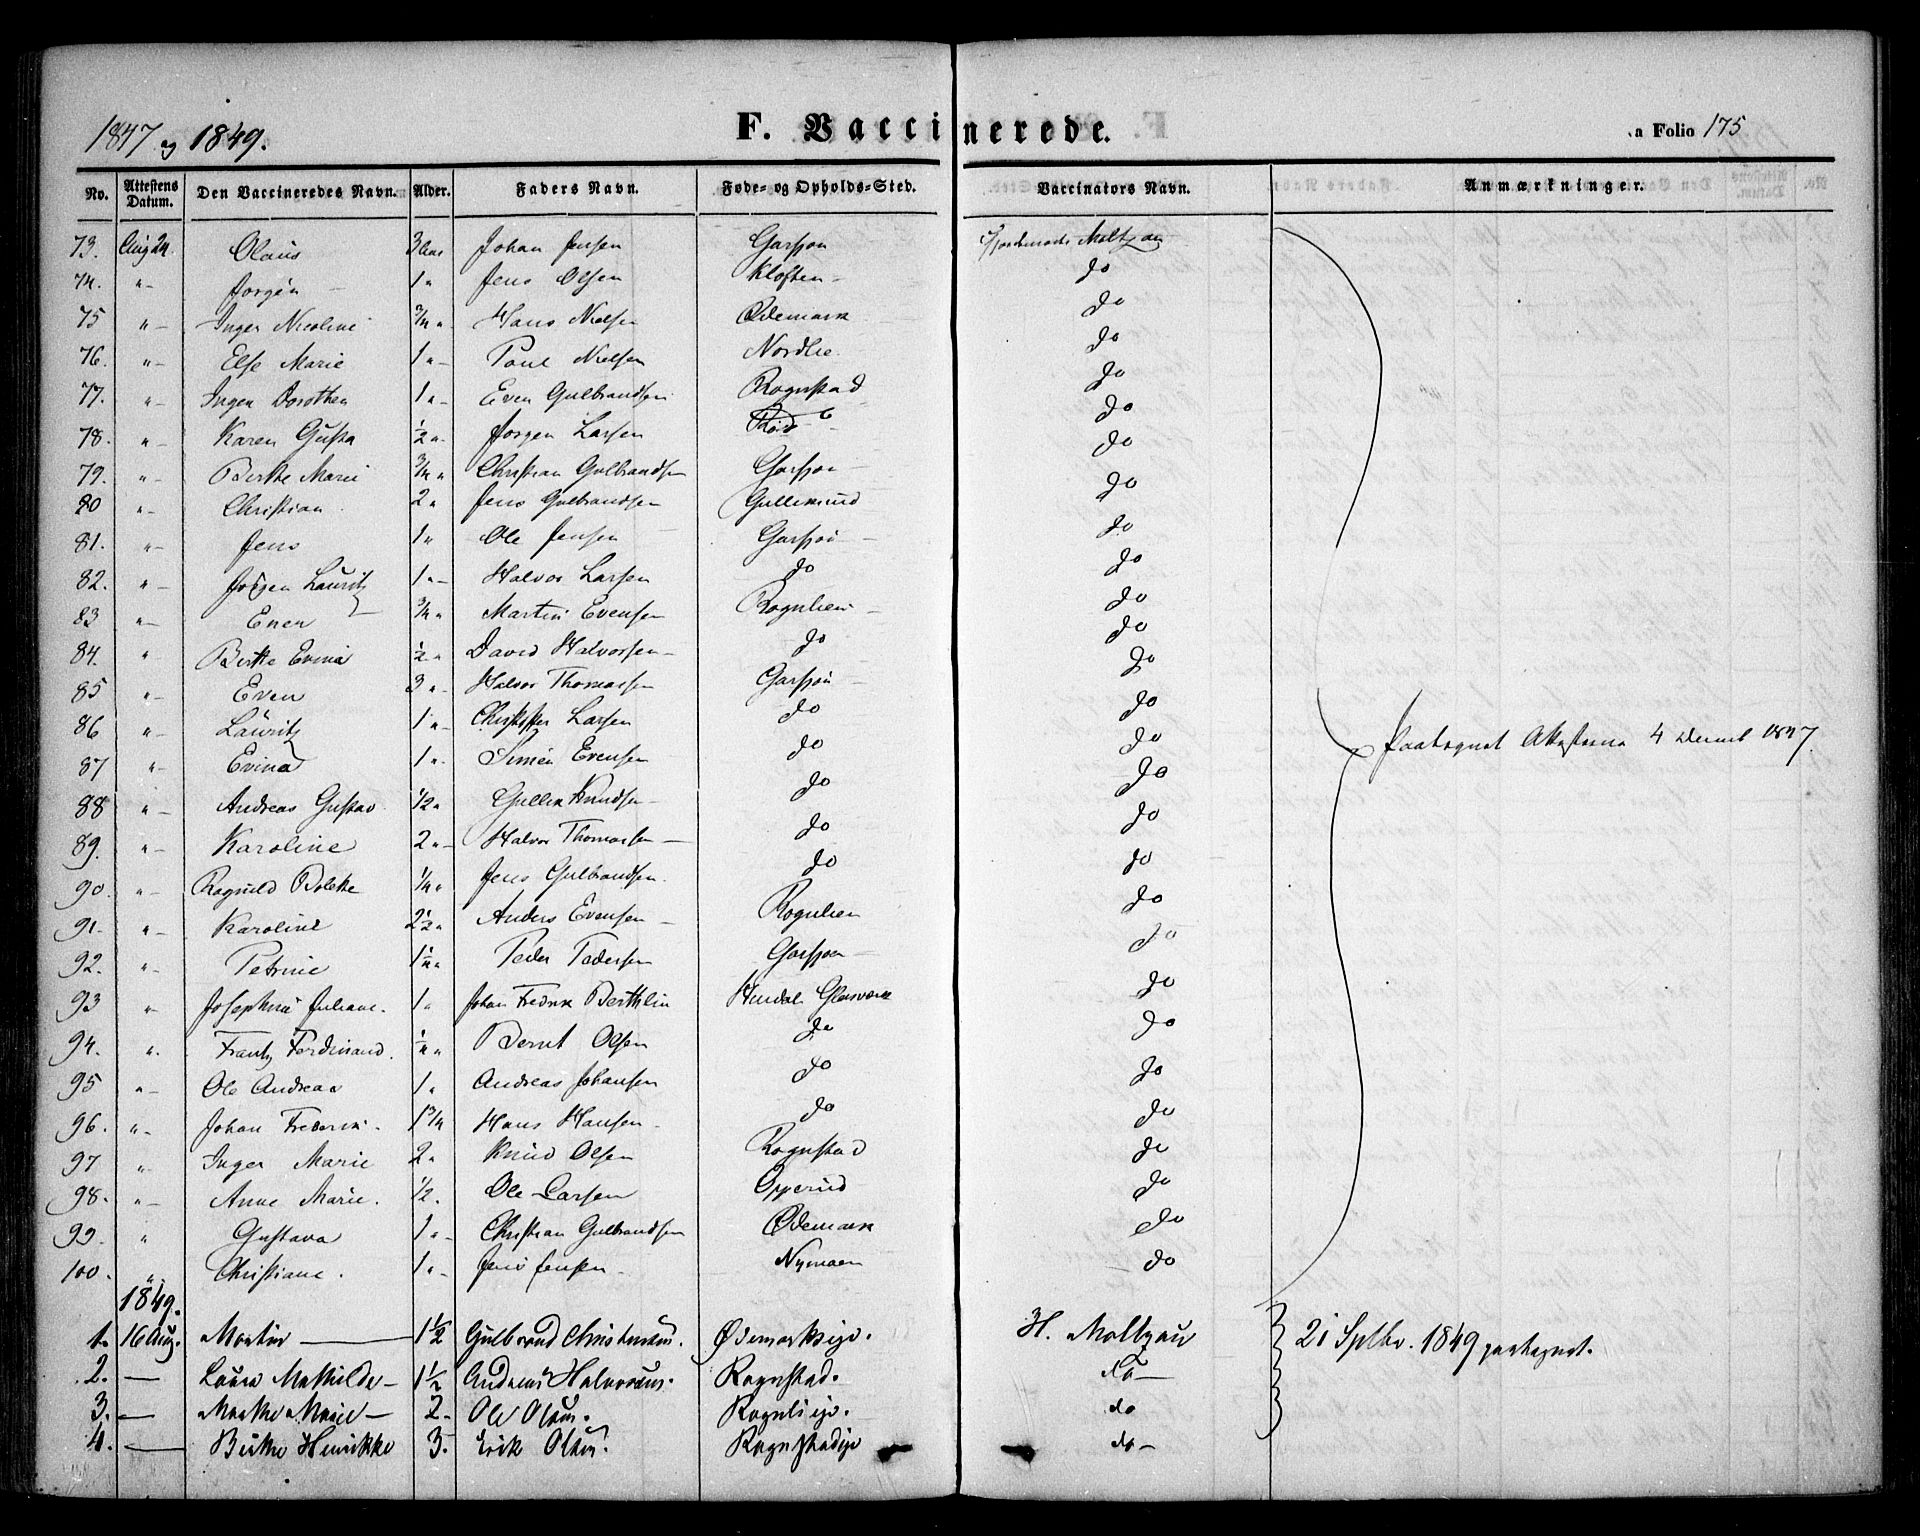 1847 og 1849. F. Vaccinerede. a Folio 175
No. Attestens Datum. Den Vaccineredes Navn. Alder. Faders Navn. Føde- og Opholds-Sted. Vaccinators Navn. Anmærkninger.
73. Aug 24. Olaus 3 Johan Jensen Garsjøn Moltzau
74. "- Jørgen - 1" Jens Olsen Kloften - do
75 "- Inger Nicoline 3/4 "- Hans Nielsen Ødemark do
76. "- Else Marie 1"- Poul Nielsen Nordlie do
77. "- Inger Dorothea 1"- Even Gulbrandsen Rognstad do
78. "- Karen Gusta 1/2 "- Jørgen Larsen do
79. "- Berthe Marie 3/4 " Christian Gulbrandsen Garsjøn - do
80 "- Christian 2" Jens Gulbrandsen Gullerud do
81. "- Jens 1" Ole Jensen Garsjøn - do
82. " Jørgen Lauritz 1"- Halvor Larsen do do
83 "- Ener 3/4 " Martin Evensen Rognlien - do
84. " Berthe Evina 1/2 " David Halvorsen - do do
85 "- Even 3 "- Halvor Thomassen Garsjøn - do
86 "- Lauritz 1 "- Christoffer Larsen do do
87 "- Evina 1 "- Simen Evensen do do
Paategnet Attesterne 4 1847.
88 "- Andreas Gustav 1/2 " Gullik Knudsen - do do
89. "- Karoline 2 "- Halvor Thomassen - do do
90. "- Ragnild Bolette 1/4 " Jens Gulbrandsen. do do
91. "- Karoline 2 1/2 " Anders Evensen - Rognlien do
92. "- Petrine 1 1/4 " Peder Pedersen Garsjøn - do
93 "- Josephine Juliane. 1" Johan Fredrik Berthlin Hurdals Glasværk do
94. ". Frantz Ferdinand. 1/4 " Bernt Olsen do do
95 "- Ole Andreas 1" Andreas Johansen do do
96. "- Johan Frederik. 1 3/4 Hans Hansen - do do
97 "- Inger Marie 2 " Knud Olsen Rognstad do
98. "- Anne Marie. 1/2. Ole Larsen Opperud do
99. " Gustava 1 "- Christian Gulbrandsen Ødemark do
100. " Christiane. 1 "- Jens Jensen - Nymoen do
1849.
1. 16 Aug. Martin - 1 1/2 Gulbrand Christensen. Ødemarkseje. H. Moltzau 21 Septbr. 1849 paategnet.
2. - Lovise Mathilde - 1 1/2 Andreas Halvorsens. Rognstad. do -
3. - Marthe Marie - 2. Ole Olsen. Rognlieje. do
4. - Berthe Henrikke 3. Erik Olsen. Rognstadeje do -